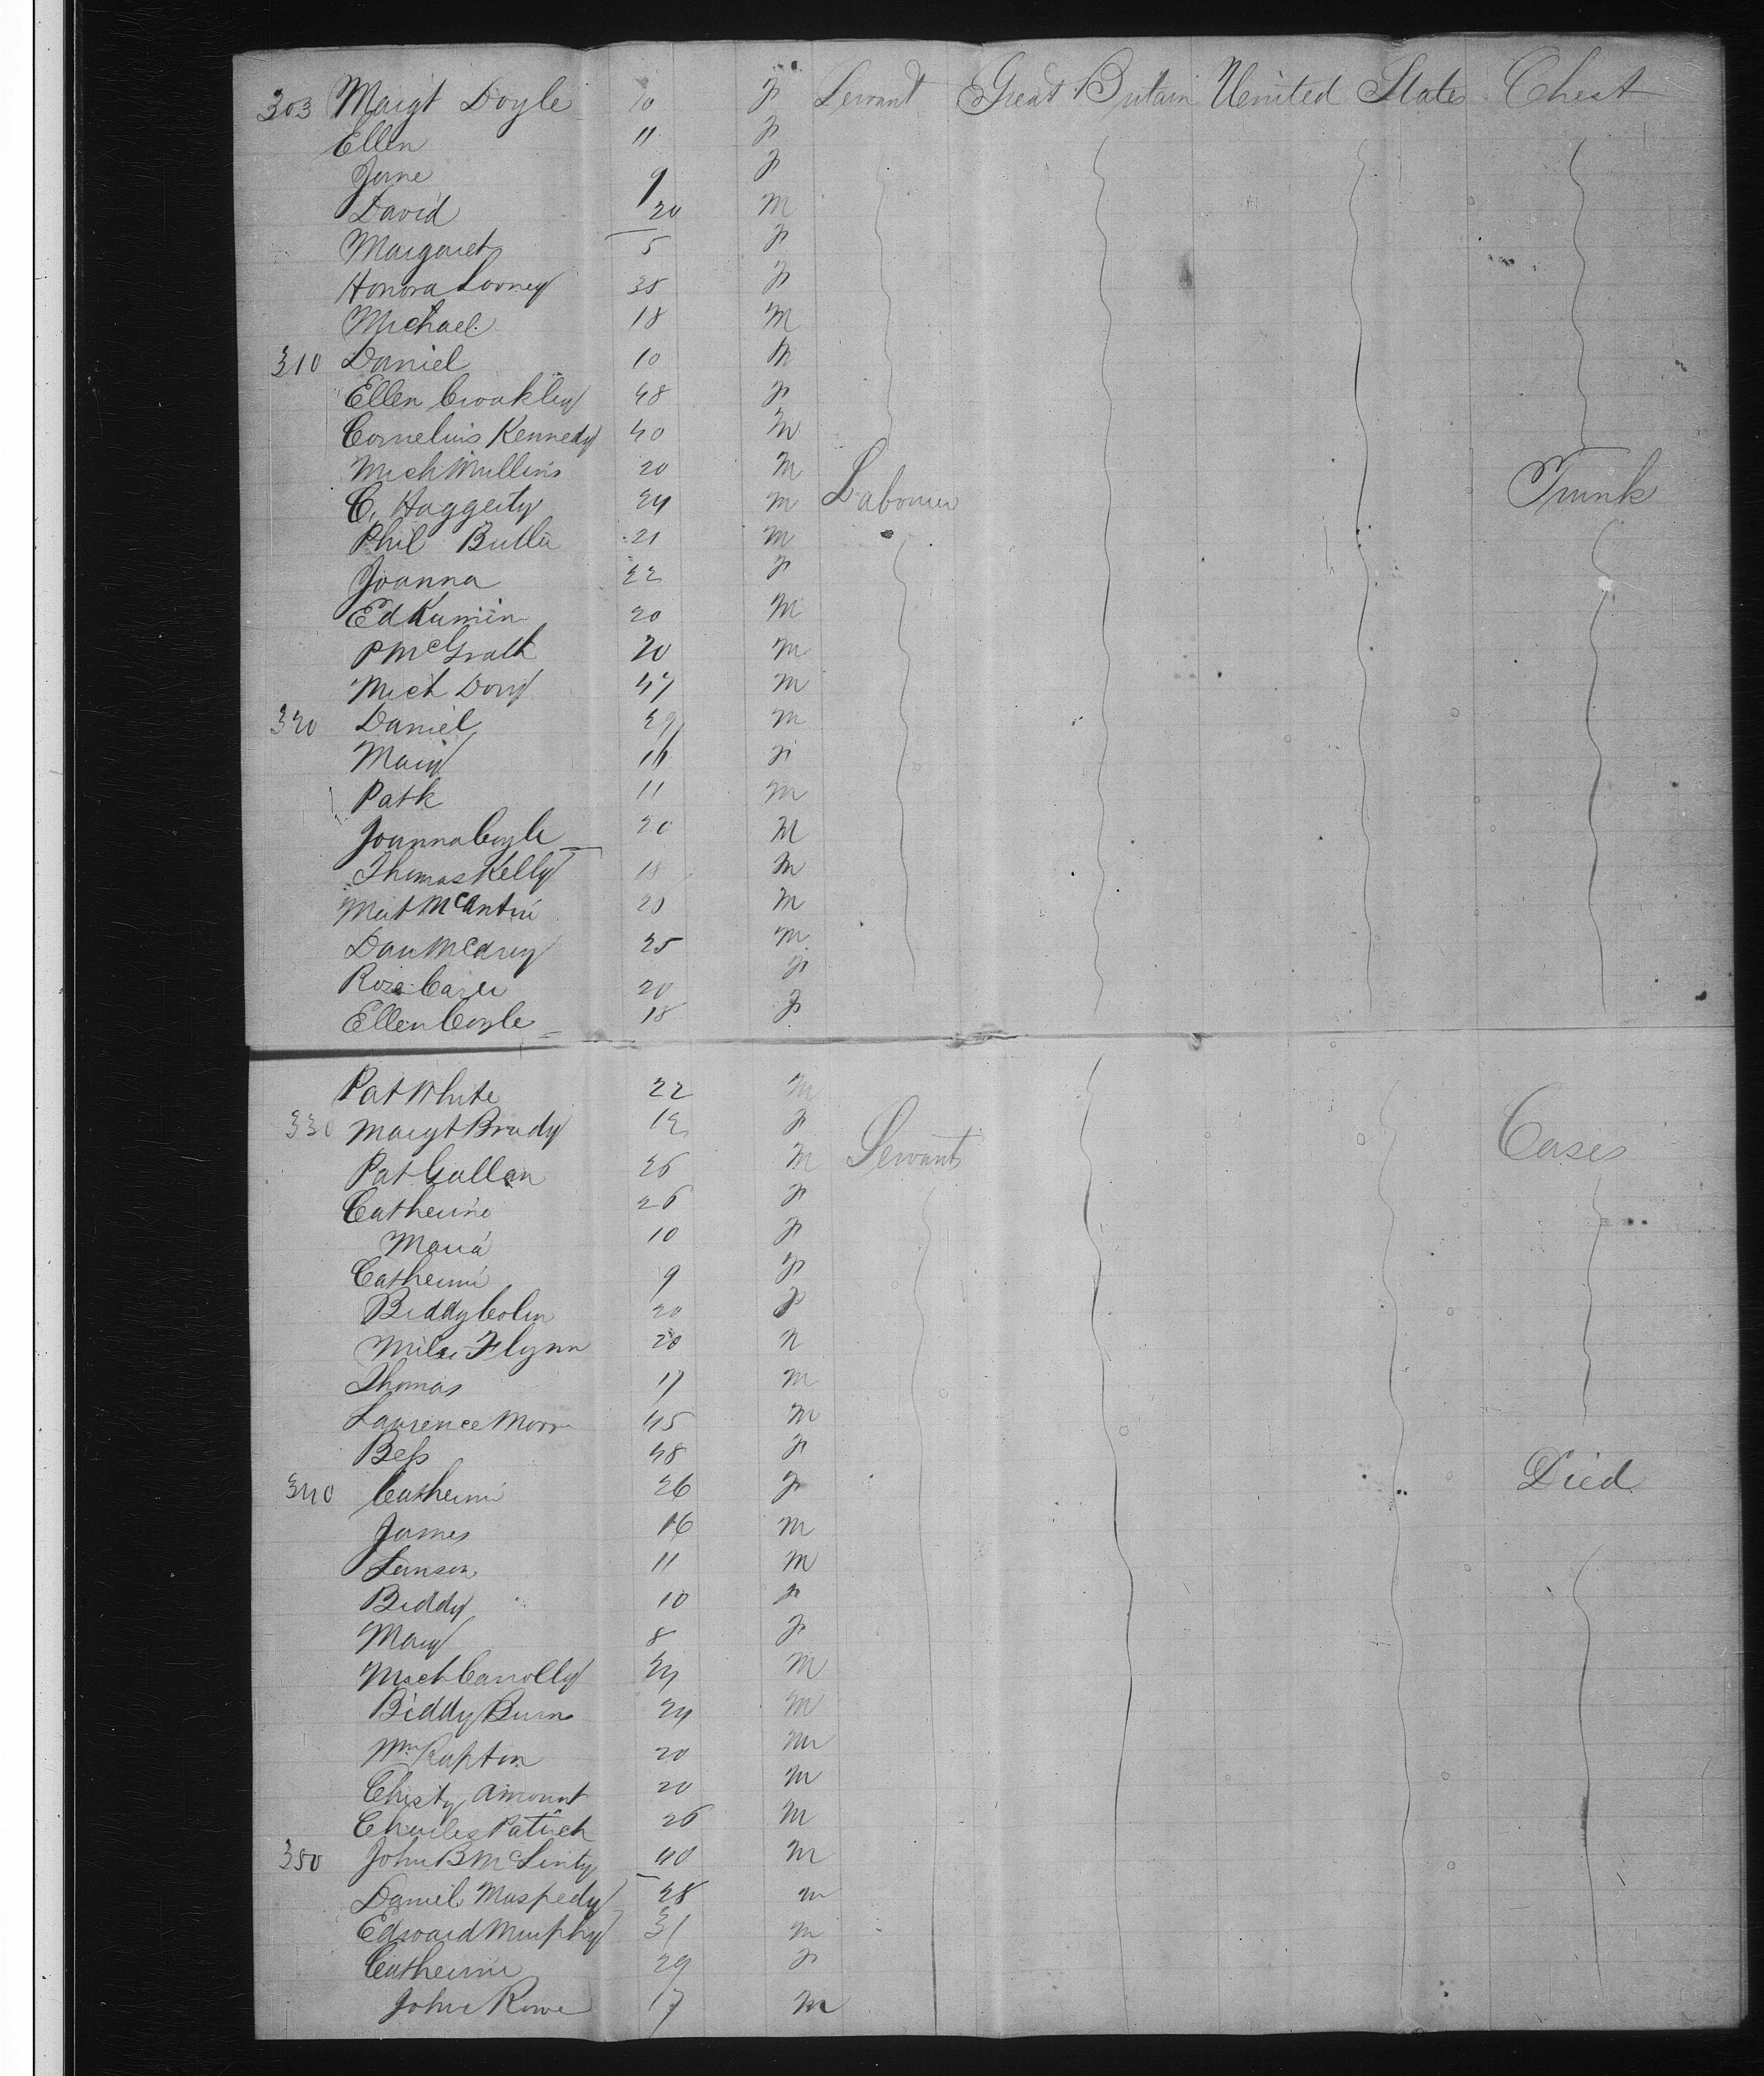 303 Margt Doyle 10 F Servant Great Britain United States Chest
Ellen 11 F
Jane 9 F
David 20 M
Margaret 5 F
Honora Looney 35 F
Michael 18 M
310 Daniel 10 M
Ellen Croakley 48 F
Cornelius Kennedy 40 M
Mich Mullins 20 M Labourer Trunk
C. Haggerty 24 M
Phil Butler 21 M
Joanna 22 F
Ed 20 M
P McGrath 20 M
Mich Dory 47 M
320 Daniel M
Mary F
Patk 11 M
Joanna Coyle 20 M
Thomas Kelly 18 M
Mat M
Dan 25 M
Rose 20 F
Ellen Coyle 18 F
Pat White 22 M
330 Margt Brady F
Pat Cullen 26 M Servants Cases
Catherine 26 F
Maria 10 F
Catherine 9 F
Biddy 20 F
Flynn 20 M
Thomas 17 M
Laurence 45 M
Bess 48 F
340 Catherine 26 F Died
James 16 M
11 M
Biddy 10 F
Mary 8 F
Mich Carrolly M
Biddy Burns 24 M
Wm 20 M
Christy Amount 20 M
Charles Patrick 26 M
350 John B McGinty 40 M
Daniel 28 M
Edward Murphy 31 M
Catherine 29 F
John Rowe 17 M